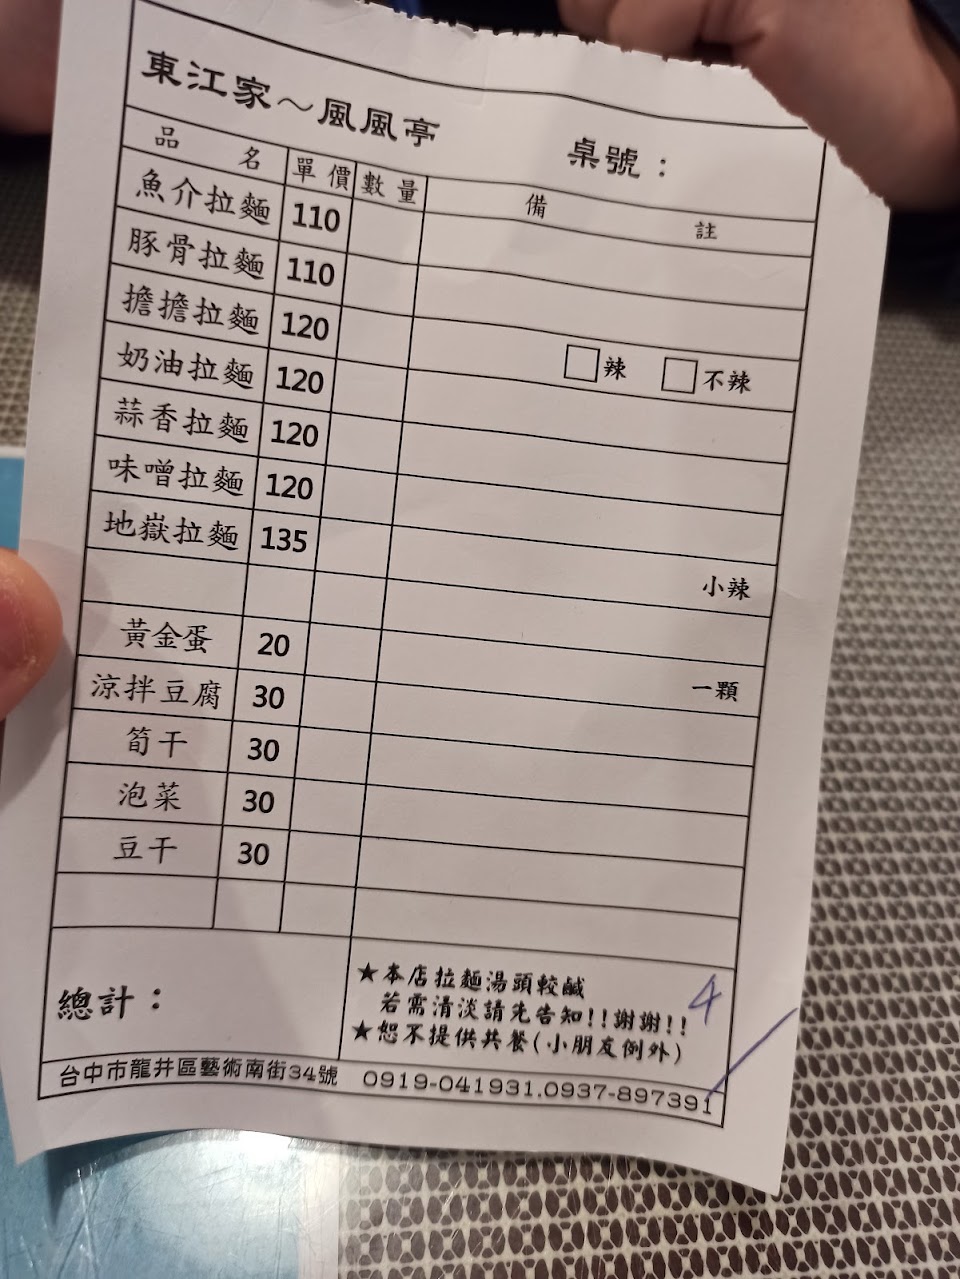 東江家～風風亭 桌號：
品名 單價 數量 備註
魚介拉麵 110
豚骨拉麵 110
擔擔拉麵 120 □辣 □不辣
奶油拉麵 120
蒜香拉麵 120
味噌拉麵 120
地獄拉麵 135 小辣
黃金蛋 20 一顆
涼拌豆腐 30
筍干 30
泡菜 30
豆干 30
總計：
★本店拉麵湯頭較鹹
若需清淡請先告知!!謝謝!!
★恕不提供共餐(小朋友例外)
4
台中市龍井區藝術南街34號 0919-041931.0937-897391